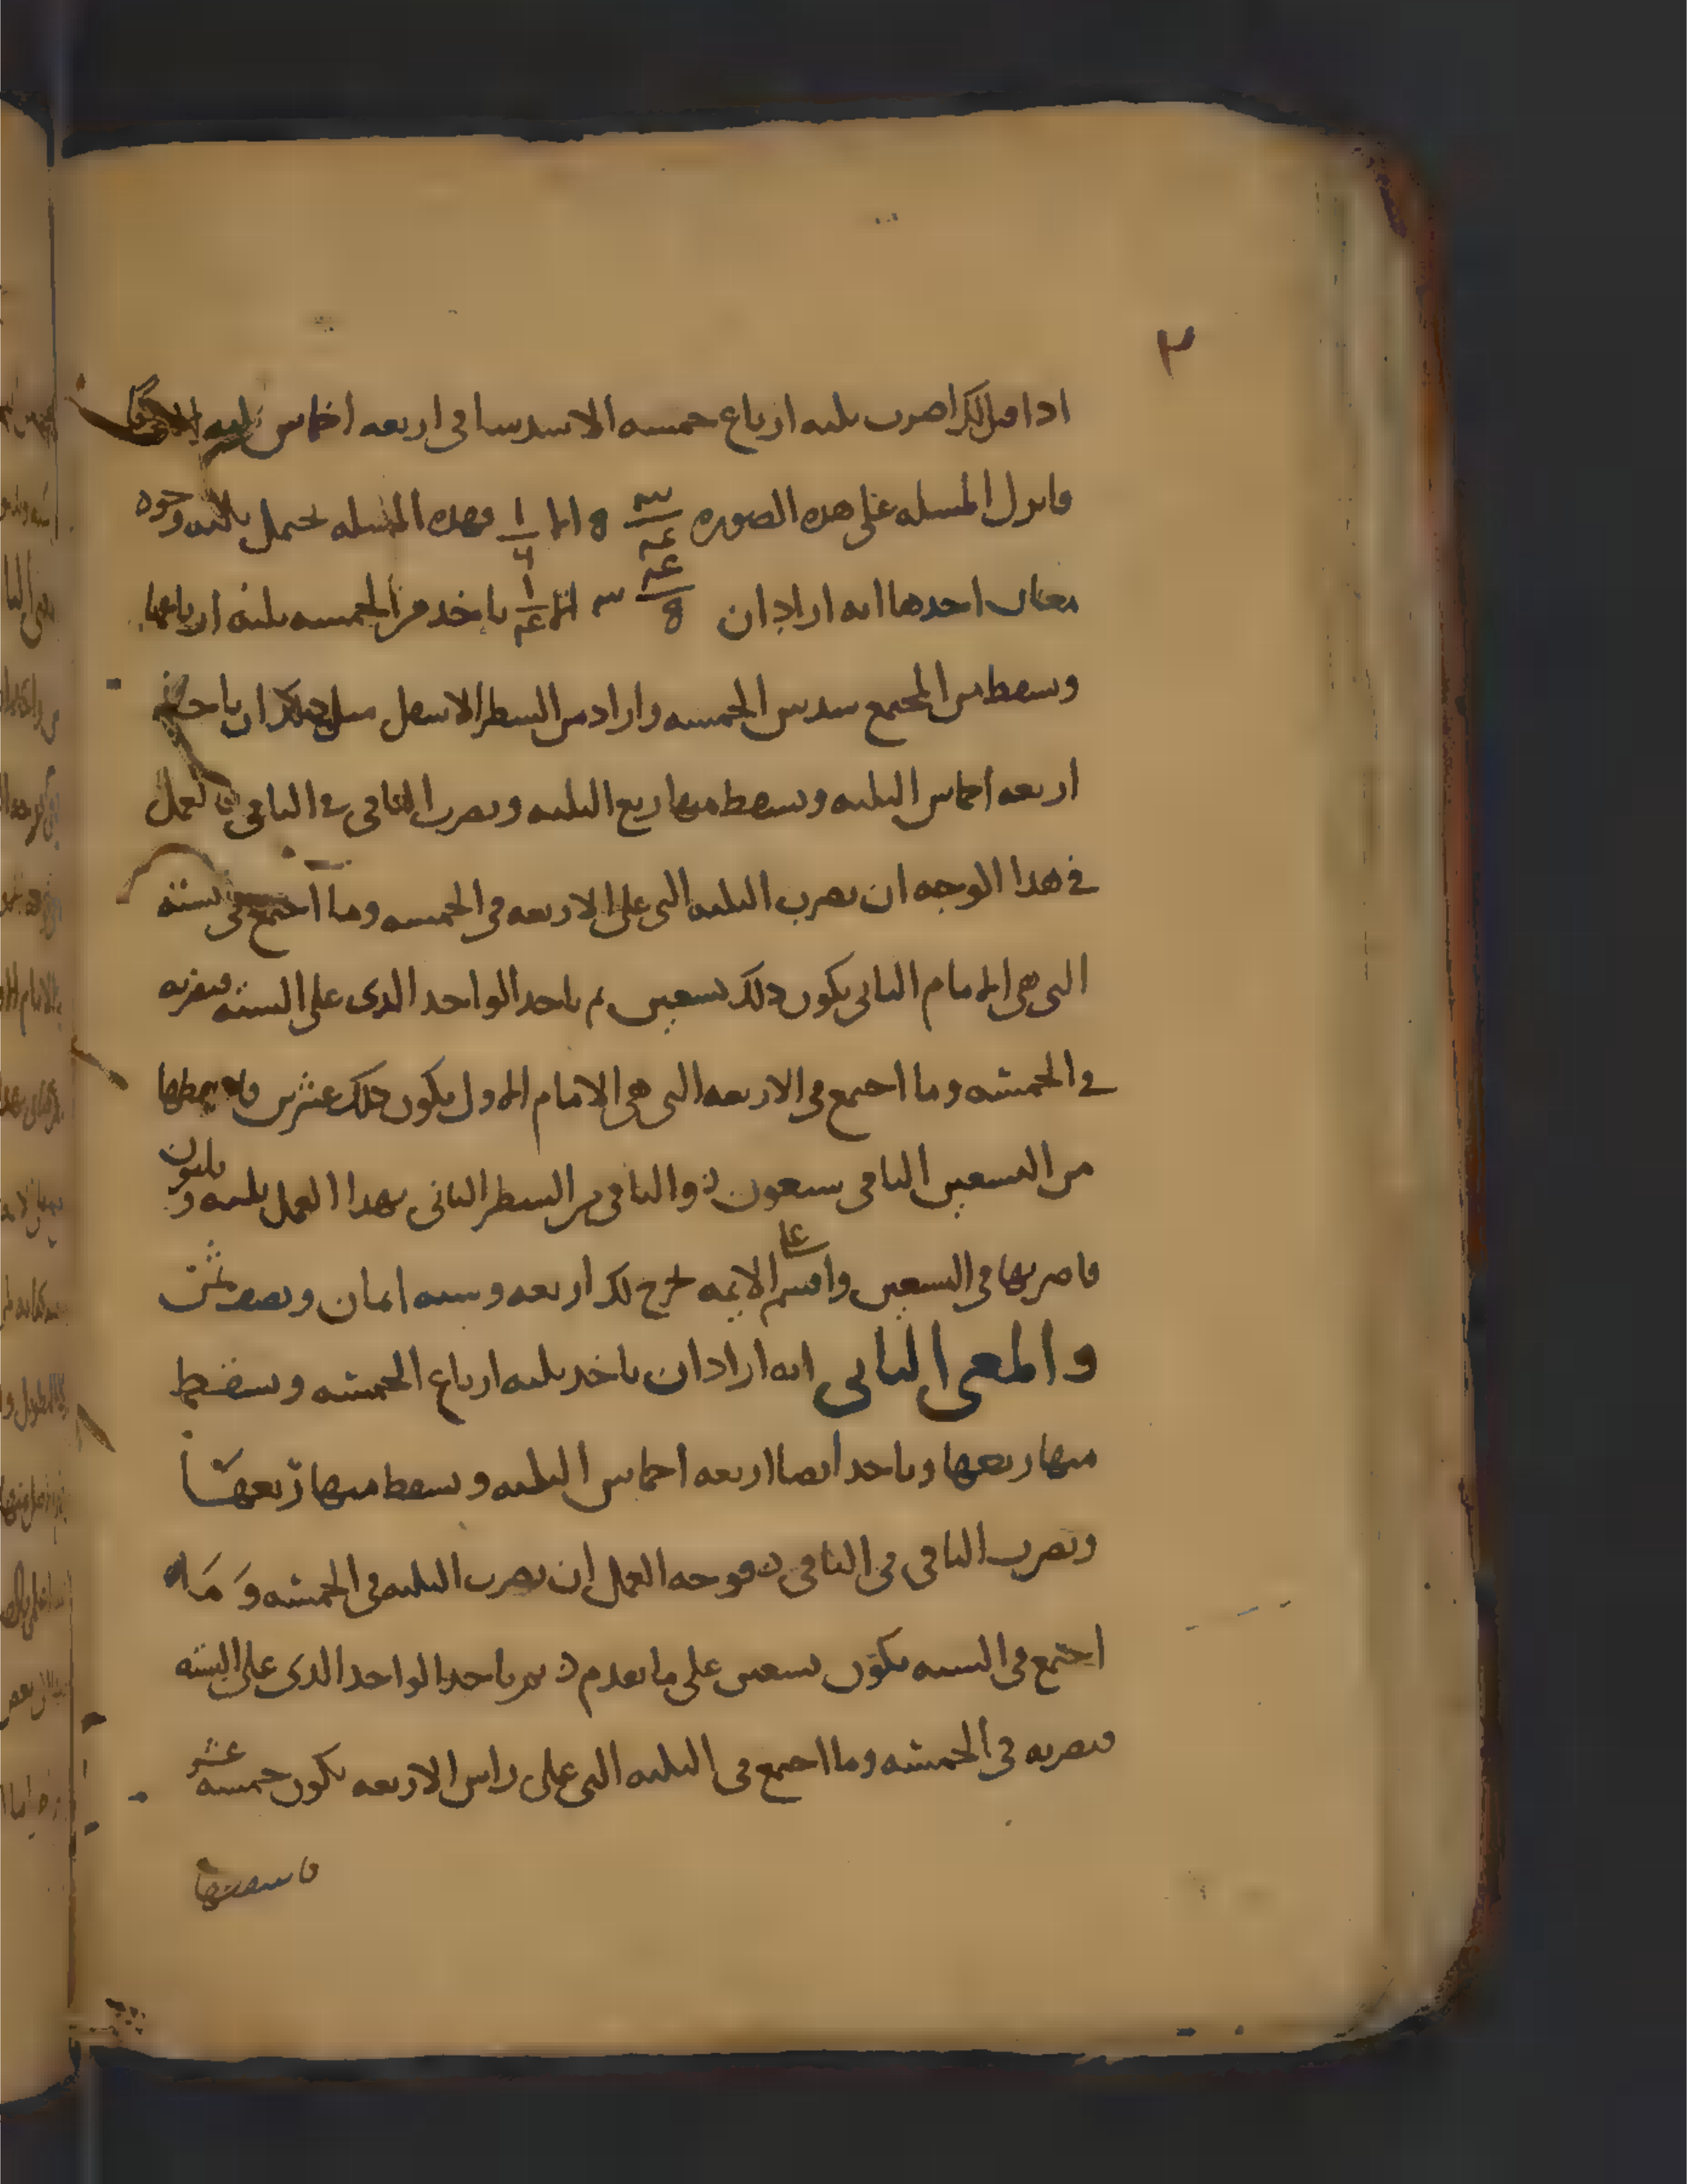 ٣
اذا قيل لك اضرب ثلثه ارباع خمسه الا سدسا في اربعه اخماس ثلثه الا ربعا
فانزل المسله على هذه الصوره ٣/٤ ٥ الا ١/٦ وهذه المسله تحتمل ثلثه وجوه
معان احدها انه اراد ان ٤/٥ ٣ الا ١/٤ ياخذ من الخمسه ثلثه ارباعها
وسقط من المجتمع سدس الخمسه واراد من السطر الاسفل مثل ذلك ان ياخذ
اربعه اخماس الثلثه وسقط منها ربع الثلثه وتضرب الباقي في الباقي فالعمل
في هذا الوجه ان تضرب الثلثه التي على الاربعه في الخمسه وما اجتمع في سته
التي هي الامام الثاني يكون ذلك تسعين ثم تاخذ الواحد الذي على السته فتضربه
في الخمسه وما اجتمع في الاربعه التي هي الامام الاول يكون ذلك عشرين فاسقطها
من التسعين الباقي سبعون والباقي من السطر الثاني بهذا العمل ثلثه وثلثون
فاضربها في السبعين واقسم على الايمه يخرج لك اربعه وسته اثمان ونصف ثمن
والمعنى الثاني انه اراد ان ياخذ ثلثه ارباع الخمسه وسقط
منها ربعها وياخذ ايضا اربعه اخماس الثلثه وسقط منها ربعها
وتضرب الباقي في الباقي فوجه العمل ان تضرب الثلثه في الخمسه وما
اجتمع في السته يكون تسعين على ما تقدم ثم تاخذ الواحد الذي على السته
فتضربه في الخمسه وما اجتمع في الثلثه التي على راس الاربعه يكون خمسه عشر
فاسقطها